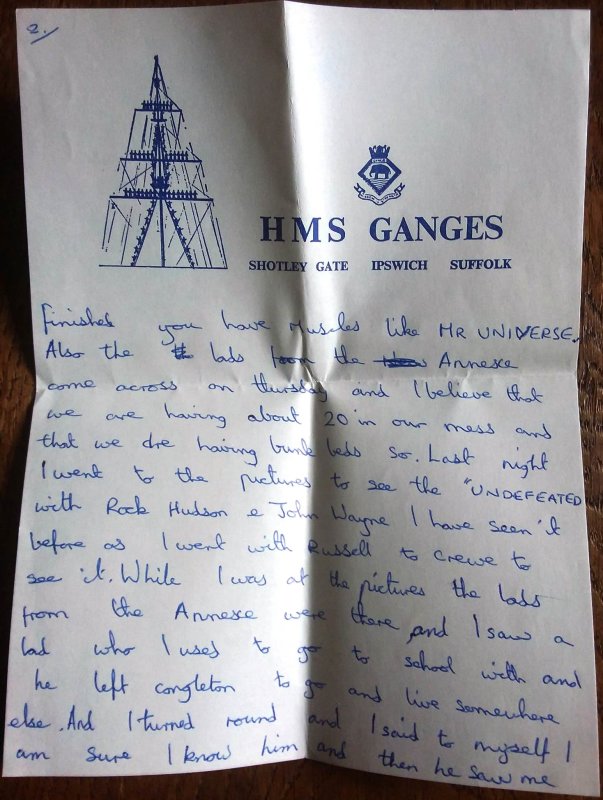 2.
HMS GANGES
SHOTLEY GATE IPSWICH SUFFOLK
finishes you have Muscles like MR UNIVERSE.
Also the lads from the Annexe
come across on thursday and I believe that
we are having about 20 in our mess and
that we are having bunk beds so. Last night
I went to the pictures to see the "UNDEFEATED
with Rock Hudson e John Wayne I have seen it
before as I went with Russell to Crewe to
see it. While I was at the pictures the lads
from the Annexe were there and I saw a
lad who I used to go to school with and
he left congleton to go and live somewhere
else. And I turned round and I said to myself I
am sure I know him and then he saw me